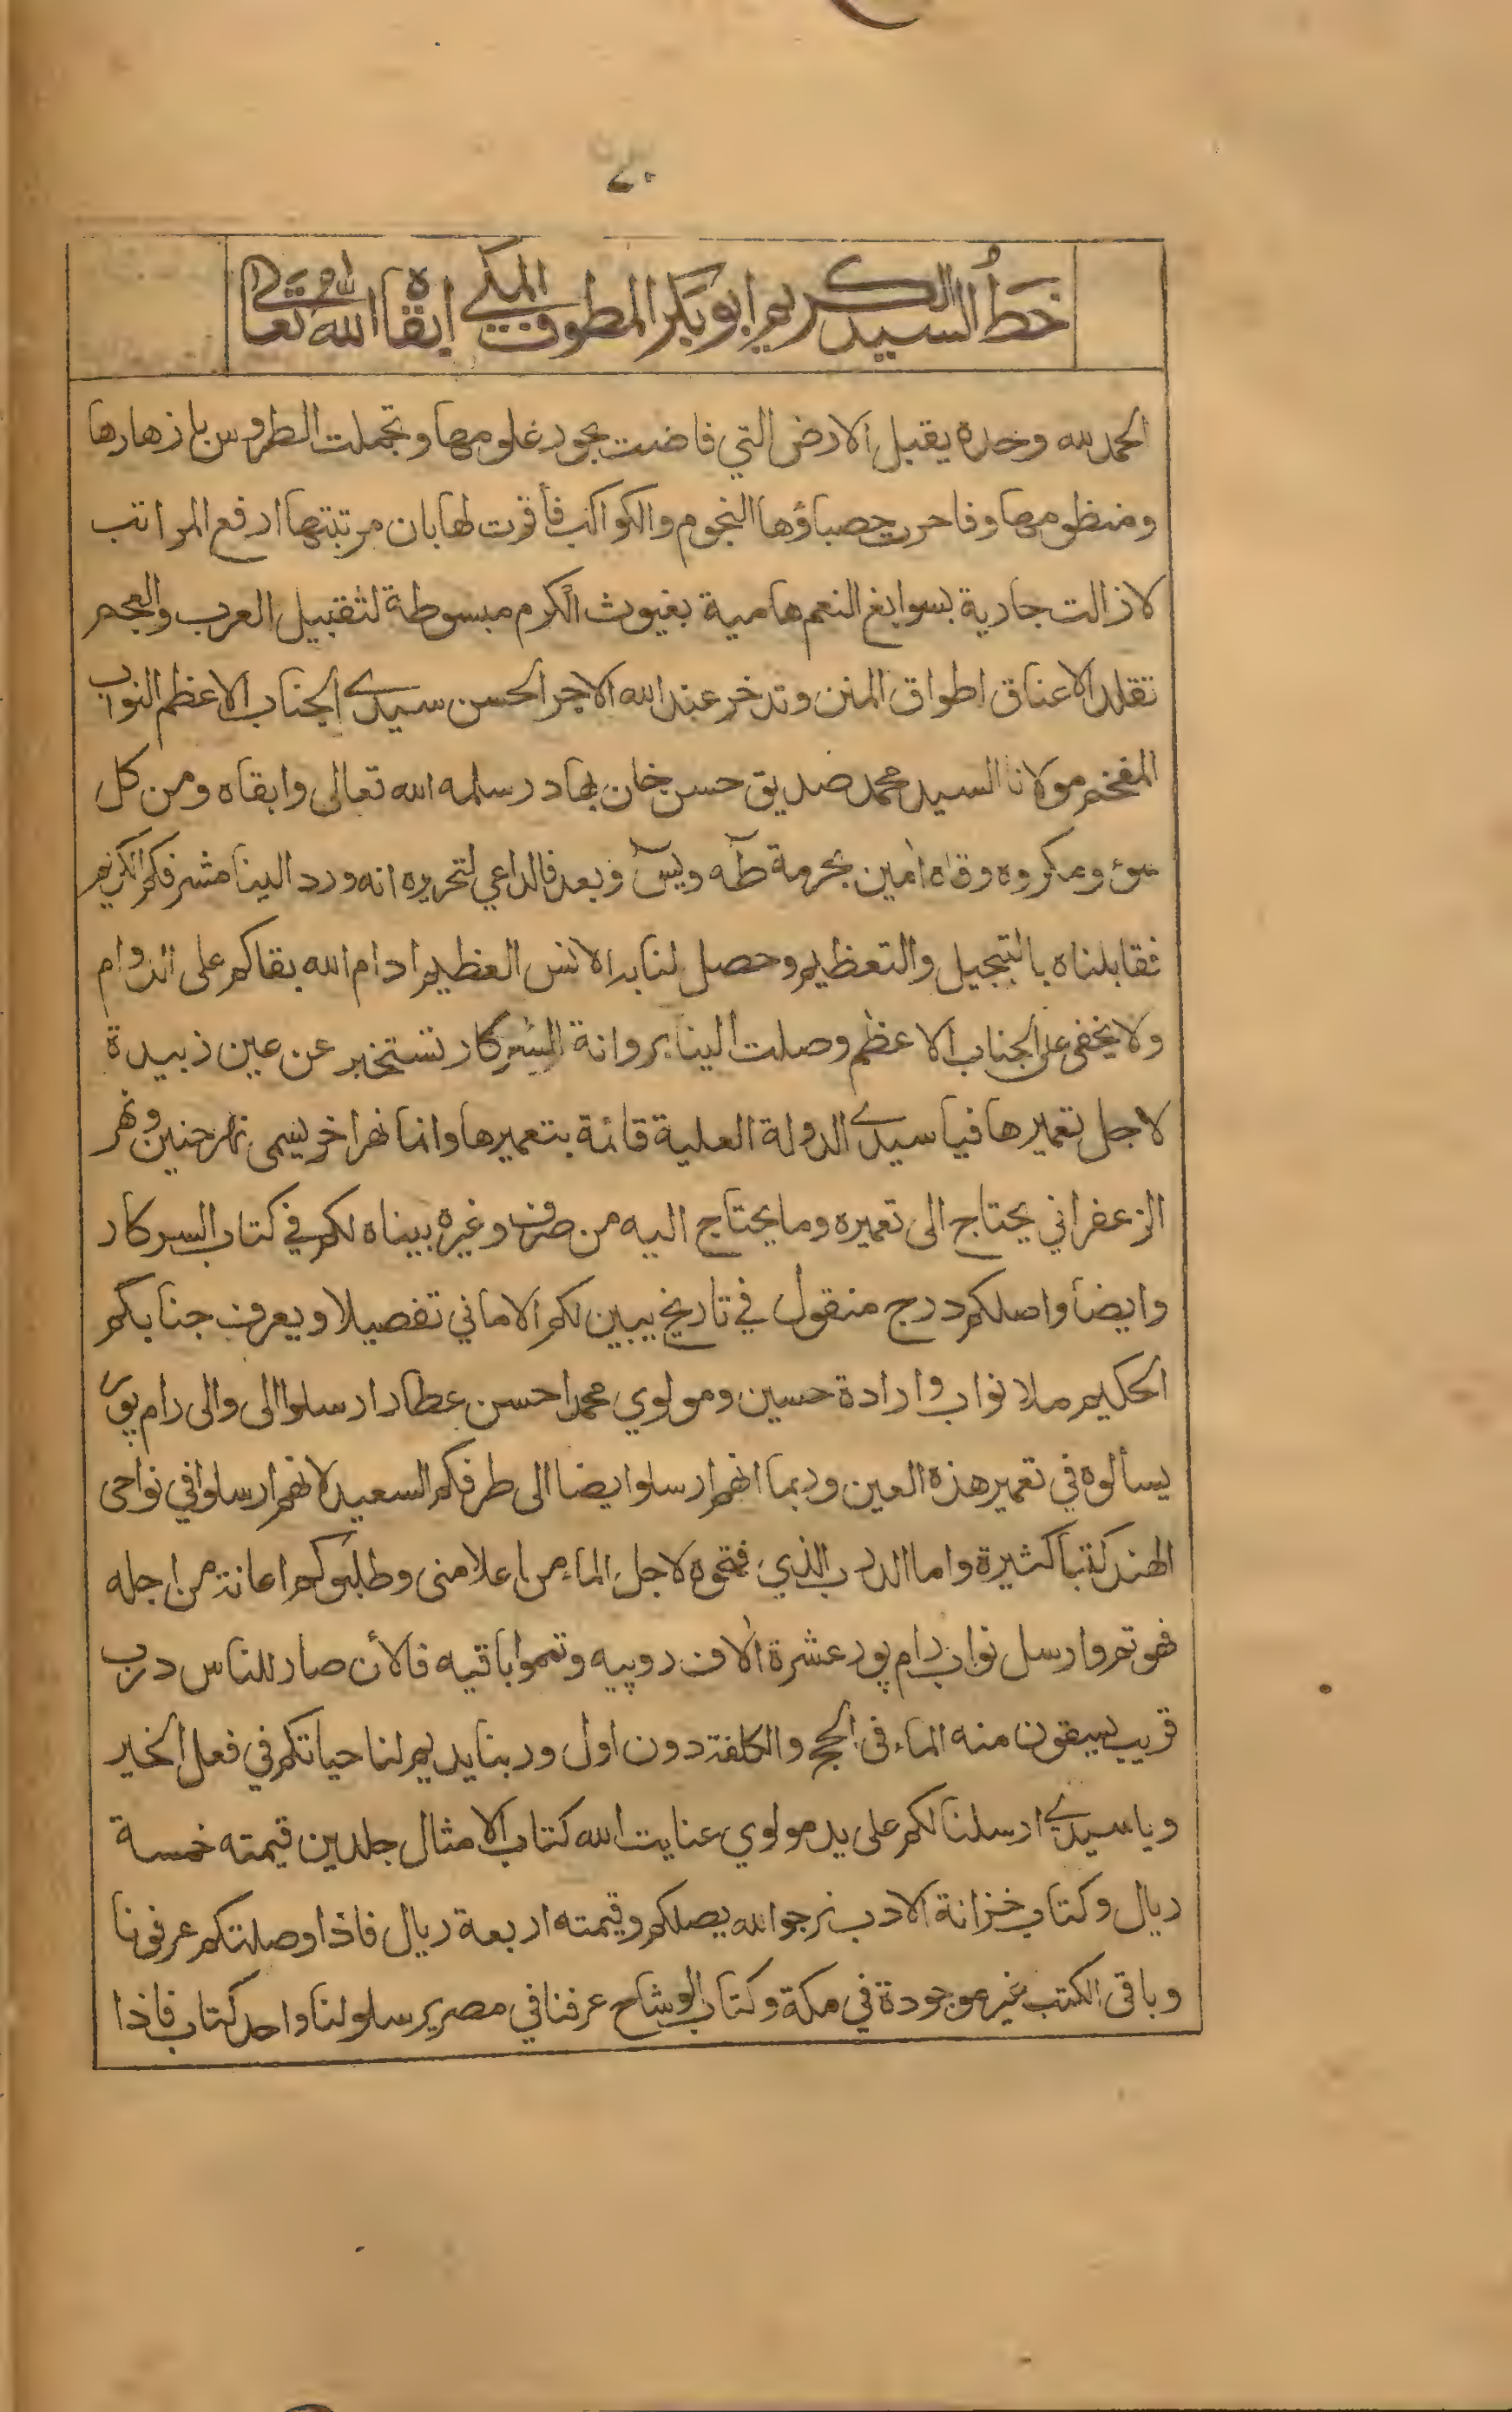 ٤٠
خط السيد الكريم ابو بكر المطوف المكي ابقاه الله تعالى
الحمد لله وحده يقبل الارض التي فاضت بجور علومها وتجملت الطروس بازهارها
ومنظومها وفاخرت حصباؤها النجوم والكواكب فأقرت لها بان مرتبتها ارفع المراتب
لازالت جارية بسوابغ النعم هامية بغيوث الكرم مبسوطة لتقبيل العرب والعجم
تقلد الاعناق اطواق المنن وتدخر عند الله الاجر الحسن سيدي الجناب الاعظم النواب
المفخم مولانا السيد محمد صديق حسن خان بهادر سلمه الله تعالى وابقاه ومن كل
سوء ومكروه وقاه امين بحرمة طه ويس وبعد فالداعي لتحريره انه ورد الينا مشرفكم الكريم
فقابلناه بالتبجيل والتعظيم وحصل لنا به الانس العظيم ادام الله بقاكم على الدوام
ولا يخفى على الجناب الاعظم وصلت الينا پروانة السركار تستخبر عن عين زبيدة
لاجل تعميرها فيا سيدي الدولة العلية قائمة بتعميرها وانما نهر اخر يسمى نهر حنين ونهر
الزعفراني يحتاج الى تعميره وما يحتاج اليه من صرف وغيره بيناه لكم في كتاب السركار
وايضا واصلكم درج منقول في تاريخ يبين لكم الاماني تفصيلا ويعرف جنابكم
الحكيم ملا نواب وارادة حسين ومولوي محمد احسن عطار ارسلوا الى والى رام پور
يسألوه في تعمير هذه العين وربما انهم ارسلوا ايضا الى طرفكم السعيد لانهم ارسلوا في نواحى
الهند كتبا كثيرة واما الدرب الذي فتحوه لاجل الماء من اعلا منى وطلبوكم اعانة من اجله
فهو تم وارسل نواب رام پور عشرة الاف روپيه وتمموا باقيه فالأن صار للناس درب
قريب يسقون منه الماء فى الحج والكلفة دون اول وربنا يديم لنا حياتكم في فعل الخير
ويا سيدي ارسلنا لكم على يد مولوي عنايت الله كتاب الامثال جلدين قيمته خمسة
ريال وكتاب خزانة الادب نرجو الله يصلكم وقيمته اربعة ريال فاذا وصلتكم عرفونا
وباقى الكتب غير موجودة في مكة وكتاب الوشاح عرفنا في مصر يرسلو لنا واحد كتاب فاذا